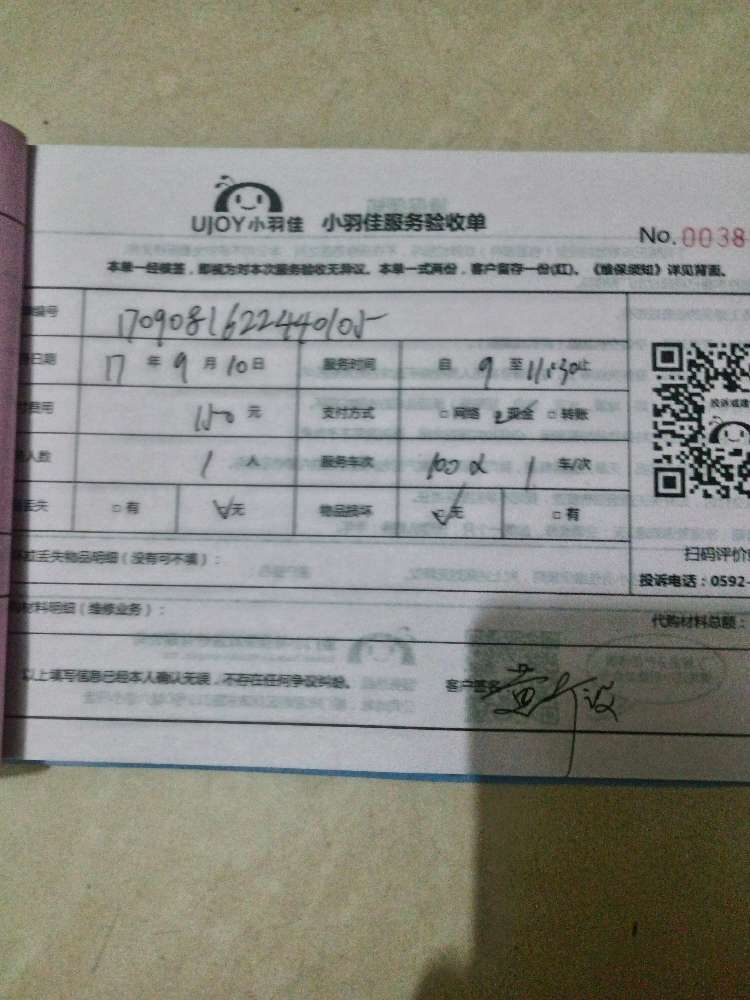 UJOY小羽佳 小羽佳服务验收单
No.0038
本单一经核签，即视为对本次服务验收无异议。本单一式两份，客户留存一份(红)。《维保须知》详见背面。
编号 170908162244010
日期 17 年 9 月 10 日 服务时间 自 9 至 11:30 止
费用 150 元 支付方式 □网络 现金 □转账
人数 1 人 服务车次 1 车/次
丢失 □有 √无 物品损坏 √无 □有
投诉或建
丢失物品明细（没有可不填）：
扫码评价
投诉电话：0592-
材料明细（维修业务）：
代购材料总额：
以上填写信息已经本人确认无误，不存在任何争议纠纷。 客户签名